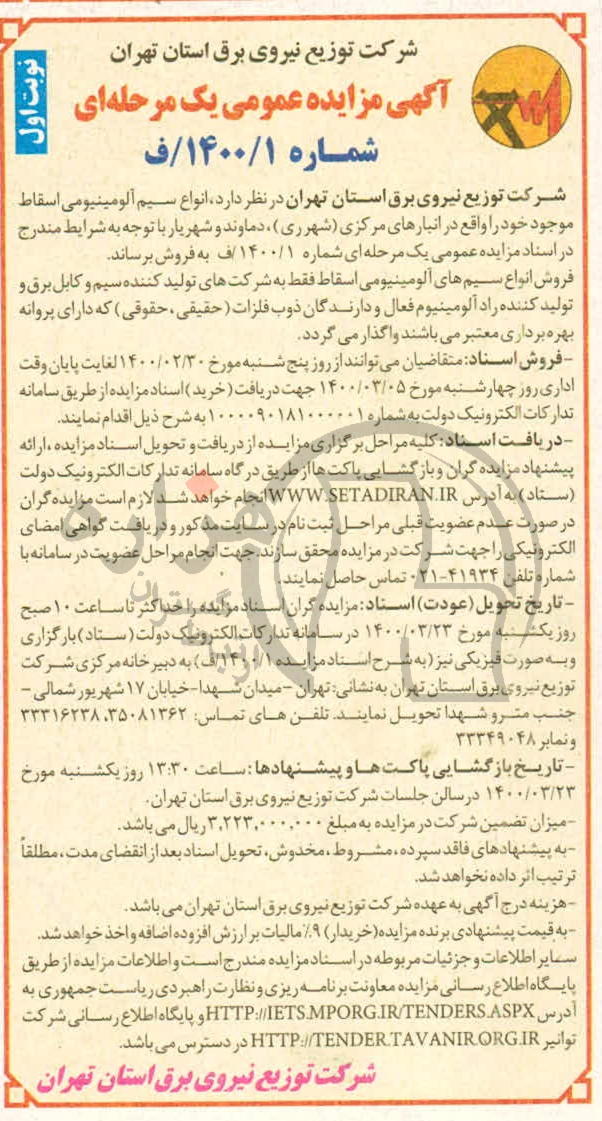 شرکت توزیع نیروی برق استان تهران
آگهی مزایده عمومی یک مرحله‌ای
شماره ۱۴۰۰/۱/ف
نوبت اول
شرکت توزیع نیروی برق استان تهران در نظر دارد، انواع سیم آلومینیومی اسقاط
موجود خود را واقع در انبارهای مرکزی (شهر ری)، دماوند و شهریار با توجه به شرایط مندرج
در اسناد مزایده عمومی یک مرحله ای شماره ۱۴۰۰/۱/ف به فروش برساند.
فروش انواع سیم های آلومینیومی اسقاط فقط به شرکت های تولید کننده سیم و کابل برق و
تولید کننده راد آلومینیوم فعال و دارندگان ذوب فلزات (حقیقی، حقوقی) که دارای پروانه
بهره برداری معتبر می باشند واگذار می گردد.
-فروش اسناد: متقاضیان می توانند از روز پنج شنبه مورخ ۱۴۰۰/۰۲/۳۰ لغایت پایان وقت
اداری روز چهارشنبه مورخ ۱۴۰۰/۰۳/۰۵ جهت دریافت (خرید) اسناد مزایده از طریق سامانه
تدارکات الکترونیک دولت به شماره ۱۰۰۰۰۹۰۱۸۱۰۰۰۰۰۱ به شرح ذیل اقدام نمایند.
-دریافت اسناد: کلیه مراحل برگزاری مزایده از دریافت و تحویل اسناد مزایده، ارائه
پیشنهاد مزایده گران و بازگشایی پاکت ها از طریق درگاه سامانه تدارکات الکترونیک دولت
(ستاد) به آدرس WWW.SETADIRAN.IR انجام خواهد شد لازم است مزایده گران
در صورت عدم عضویت قبلی مراحل ثبت نام در سایت مذکور و دریافت گواهی امضای
الکترونیکی را جهت شرکت در مزایده محقق سازند. جهت انجام مراحل عضویت در سامانه با
شماره تلفن ۴۱۹۳۴-۰۲۱ تماس حاصل نمایند.
-تاریخ تحویل (عودت) اسناد: مزایده گران اسناد مزایده را حداکثر تا ساعت ۱۰ صبح
روز یکشنبه مورخ ۱۴۰۰/۰۳/۲۳ در سامانه تدارکات الکترونیک دولت (ستاد) بارگزاری
و به صورت فیزیکی نیز (به شرح اسناد مزایده ۱۴۰۰/۱/ف) به دبیرخانه مرکزی شرکت
توزیع نیروی برق استان تهران به نشانی: تهران -میدان شهدا-خیابان ۱۷ شهریور شمالی -
جنب مترو شهدا تحویل نمایند. تلفن های تماس: ۳۵۰۸۱۳۶۲، ۳۳۳۱۶۲۳۸
و نمابر ۳۳۳۴۹۰۴۸
-تاریخ بازگشایی پاکت ها و پیشنهادها: ساعت ۱۳:۳۰ روز یکشنبه مورخ
۱۴۰۰/۰۳/۲۳ در سالن جلسات شرکت توزیع نیروی برق استان تهران.
-میزان تضمین شرکت در مزایده به مبلغ ۳,۲۲۳,۰۰۰,۰۰۰ ریال می باشد.
-به پیشنهادهای فاقد سپرده، مشروط، مخدوش، تحویل اسناد بعد از انقضای مدت، مطلقاً
ترتیب اثر داده نخواهد شد.
-هزینه درج آگهی به عهده شرکت توزیع نیروی برق استان تهران می باشد.
-به قیمت پیشنهادی برنده مزایده (خریدار) ۹٪ مالیات بر ارزش افزوده اضافه و اخذ خواهد شد.
سایر اطلاعات و جزئیات مربوطه در اسناد مزایده مندرج است و اطلاعات مزایده از طریق
پایگاه اطلاع رسانی مزایده معاونت برنامه ریزی و نظارت راهبردی ریاست جمهوری به
آدرس HTTP://IETS.MPORG.IR/TENDERS.ASPX و پایگاه اطلاع رسانی شرکت
توانیر HTTP://TENDER.TAVANIR.ORG.IR در دسترس می باشد.
شرکت توزیع نیروی برق استان تهران